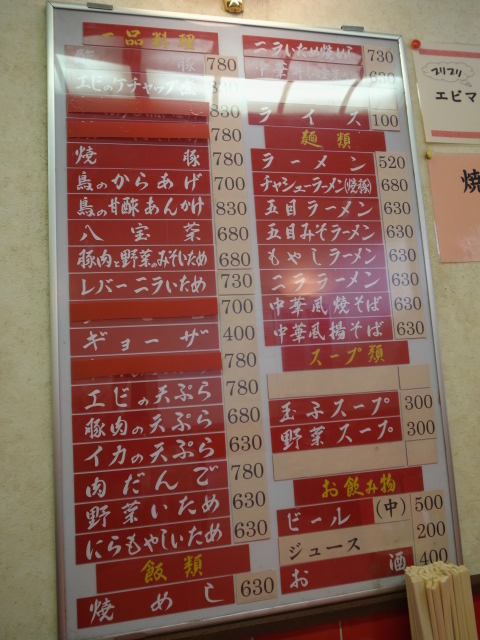 一品料理
豚 780
エビのケチャップ 830
830
780
焼豚 780
鳥のからあげ 700
鳥の甘酢あんかけ 830
八宝菜 680
豚肉と野菜のみそいため 680
レバーニラいため 730
700
ギョーザ 400
780
エビの天ぷら 780
豚肉の天ぷら 680
イカの天ぷら 630
肉だんご 780
野菜いため 630
にらもやしいため 630
飯類
焼めし 630
ニラいため焼めし 730
中華 630
ライス 100
麺類
ラーメン 520
チャシューラーメン(焼豚) 680
五目ラーメン 630
五目みそラーメン 630
もやしラーメン 630
ニララーメン 630
中華風焼そば 630
中華風揚そば 630
スープ類
玉子スープ 300
野菜スープ 300
お飲み物
ビール (中) 500
ジュース 200
お酒 400
プリプリ
エビマ
焼